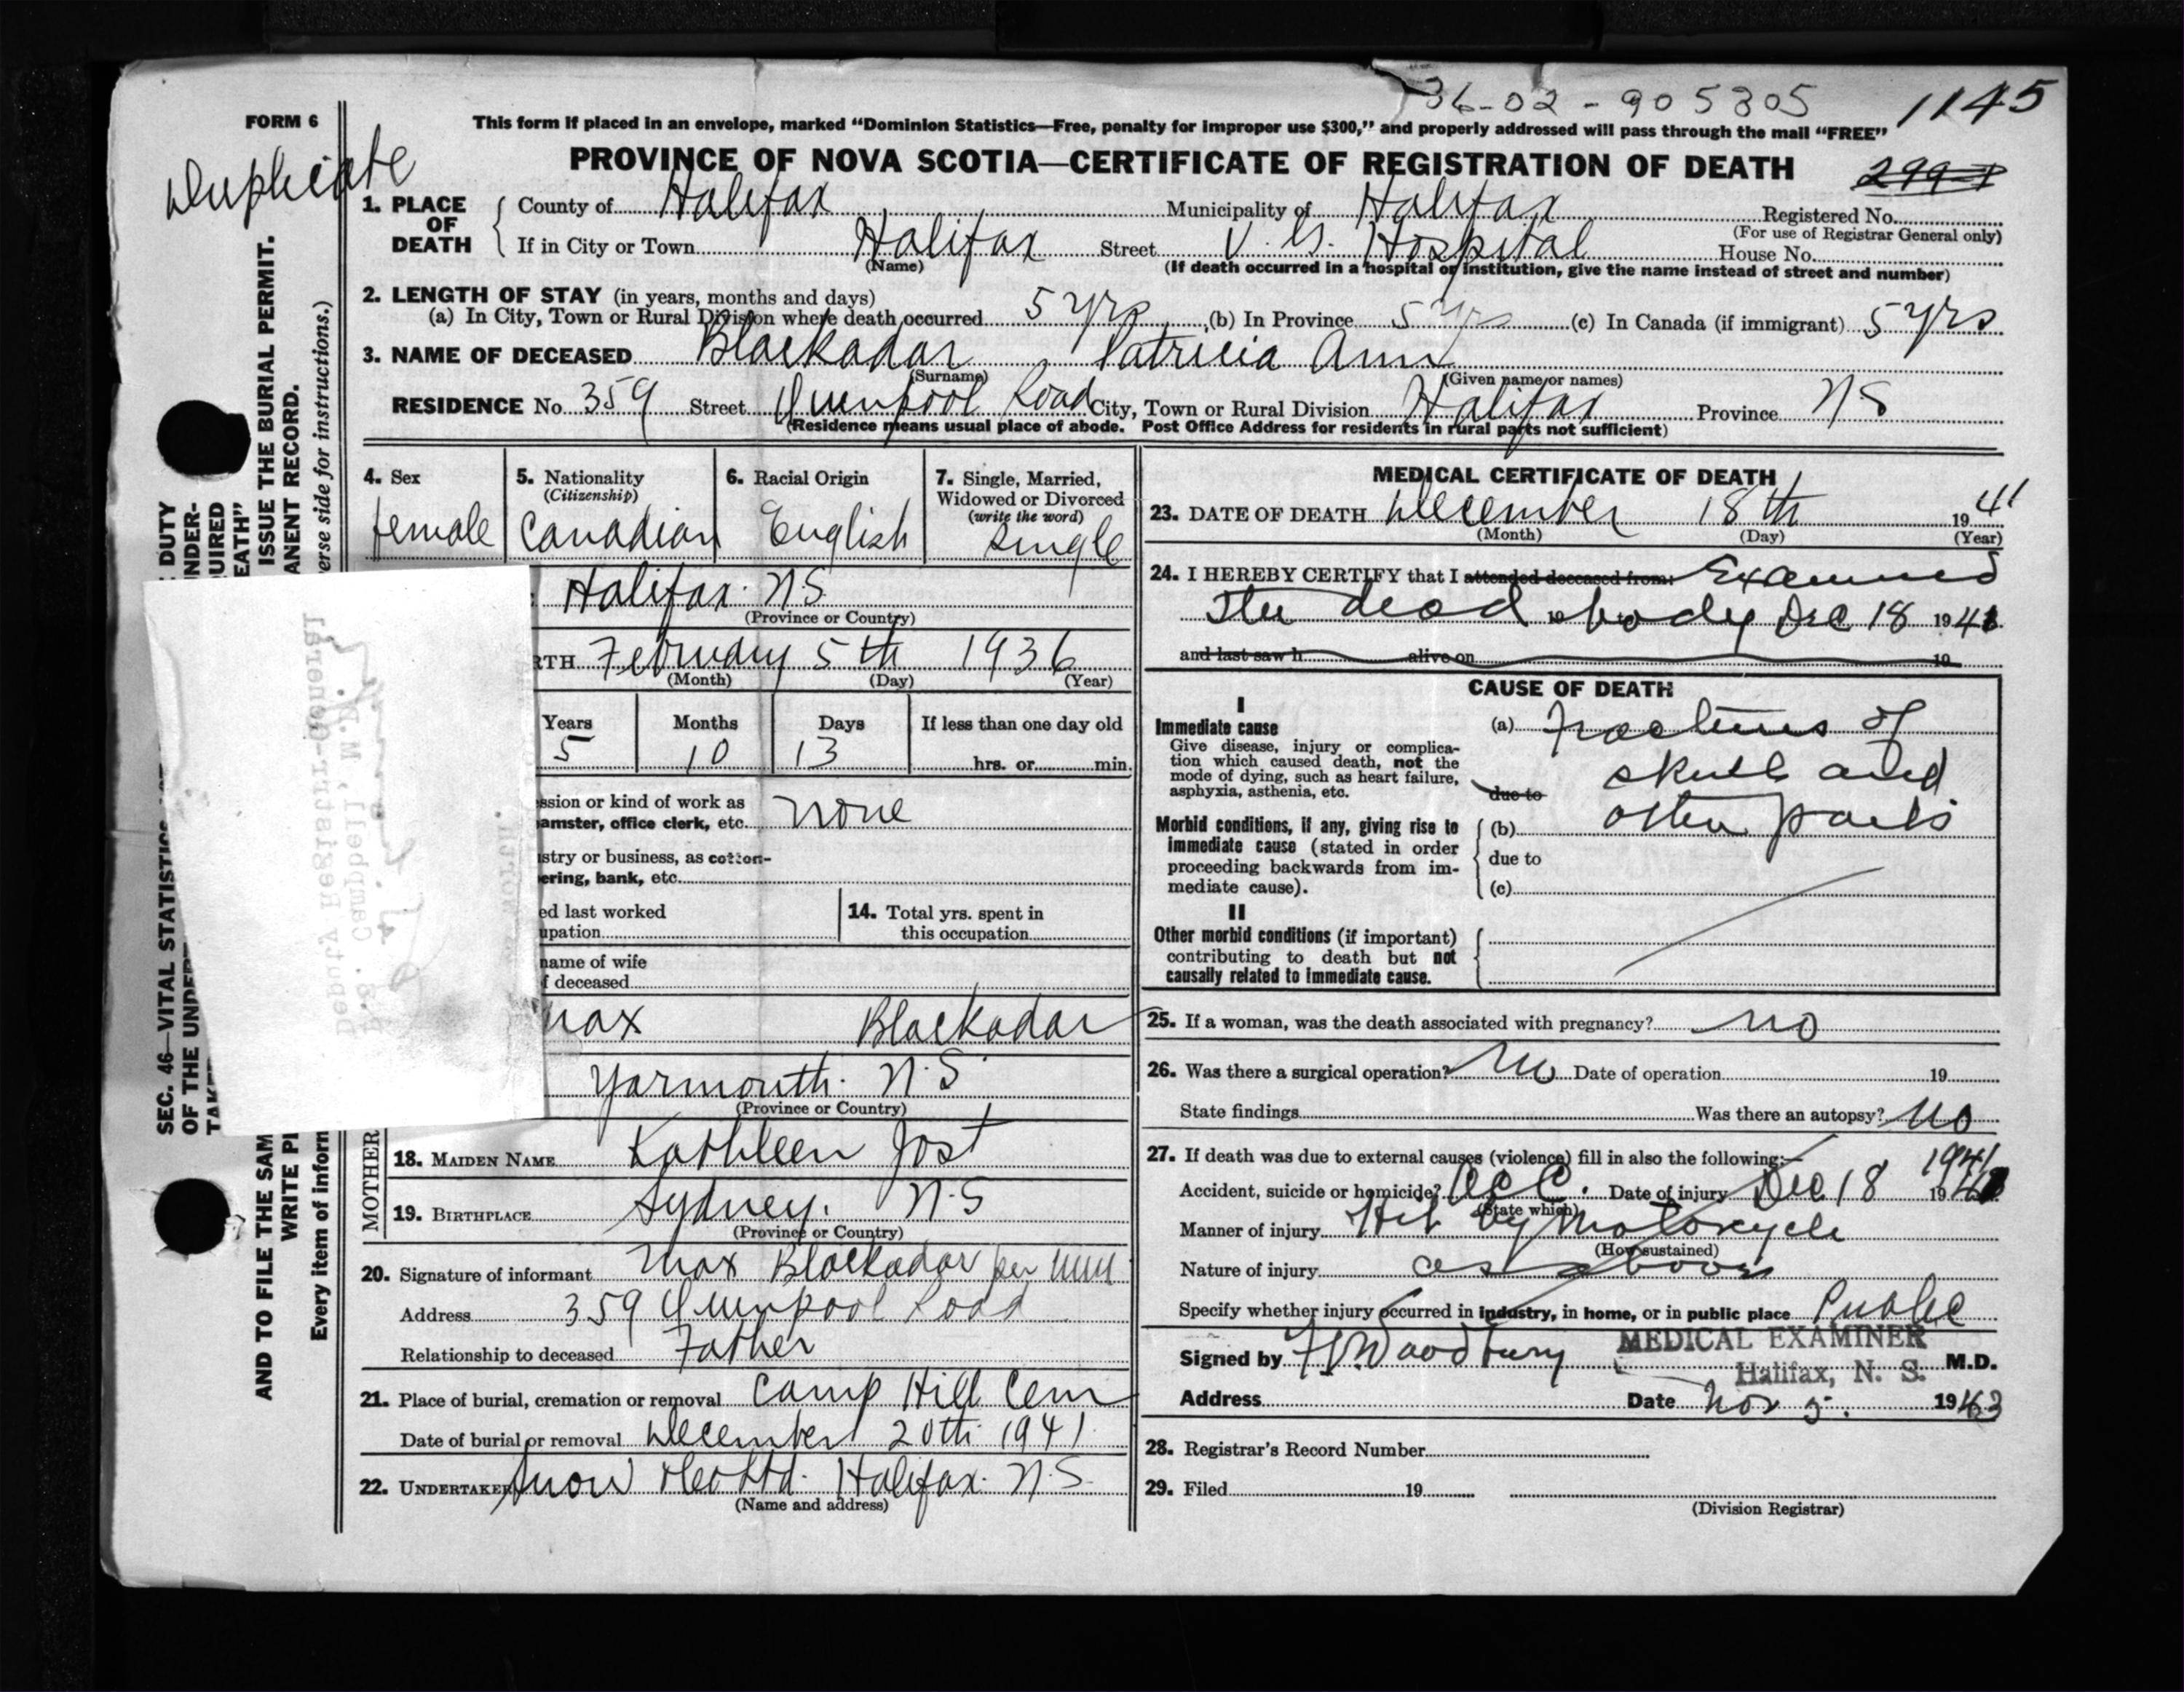 36-02-905305 1145
FORM 6
This form if placed in an envelope, marked "Dominion Statistics—Free, penalty for improper use $300," and properly addressed will pass through the mail "FREE"
Duplicate
PROVINCE OF NOVA SCOTIA—CERTIFICATE OF REGISTRATION OF DEATH
1. PLACE OF DEATH County of Halifax Municipality of Halifax Registered No.
(For use of Registrar General only)
If in City or Town Halifax Street V. G. Hospital House No.
(Name) (If death occurred in a hospital or institution, give the name instead of street and number)
2. LENGTH OF STAY (in years, months and days)
(a) In City, Town or Rural Division where death occurred 5 yrs (b) In Province 5 yrs (c) In Canada (if immigrant) 5 yrs
3. NAME OF DECEASED Blackadar Patricia Ann
(Surname) (Given name or names)
RESIDENCE No. 359 Street Quinpool Road City, Town or Rural Division Halifax Province NS
(Residence means usual place of abode. Post Office Address for residents in rural parts not sufficient)
4. Sex 5. Nationality 6. Racial Origin 7. Single, Married,
(Citizenship) Widowed or Divorced
(write the word)
female Canadian English Single
Halifax. NS
(Province or Country)
RTH February 5th 1936
(Month) (Day) (Year)
Years Months Days If less than one day old
5 10 13 hrs. or min.
ssion or kind of work as
amster, office clerk, etc. none
stry or business, as cotton-
ering, bank, etc.
ed last worked 14. Total yrs. spent in
upation this occupation
name of wife
f deceased
Max Blackadar
Yarmouth. N.S
(Province or Country)
MOTHER
18. MAIDEN NAME Kathleen Jost
19. BIRTHPLACE Sydney. N.S
(Province or Country)
20. Signature of informant Max Blackadar per
Address 359 Quinpool Road
Relationship to deceased Father
21. Place of burial, cremation or removal Camp Hill Cem
Date of burial or removal December 20th 1941
22. UNDERTAKER Snow & Co Ltd. Halifax. N.S.
(Name and address)
MEDICAL CERTIFICATE OF DEATH
23. DATE OF DEATH December 18th 1941
(Month) (Day) (Year)
24. I HEREBY CERTIFY that I attended deceased from: Examined
The dead body Dec 18 1941
and last saw h alive on 19
CAUSE OF DEATH
I
Immediate cause (a) Fractures of
Give disease, injury or complica-
tion which caused death, not the skull and
mode of dying, such as heart failure,
asphyxia, asthenia, etc. due to
Morbid conditions, if any, giving rise to (b) other parts
immediate cause (stated in order due to
proceeding backwards from im-
mediate cause). (c)
II
Other morbid conditions (if important)
contributing to death but not
causally related to immediate cause.
25. If a woman, was the death associated with pregnancy? no
26. Was there a surgical operation? No Date of operation 19
State findings Was there an autopsy? No
27. If death was due to external causes (violence) fill in also the following:— 1941
Accident, suicide or homicide? Acc. Date of injury Dec 18 19
(State which)
Manner of injury Hit by Motorcycle
(How sustained)
Nature of injury as above
Specify whether injury occurred in industry, in home, or in public place Public
MEDICAL EXAMINER
Signed by Woodbury M.D.
Halifax, N. S.
Address Date Nov 5. 1943
28. Registrar's Record Number
29. Filed 19
(Division Registrar)
SEC. 46—VITAL STATISTICS
DUTY
OF THE UNDER
UNDER-
QUIRED
EATH"
ISSUE THE BURIAL PERMIT.
AND TO FILE THE SAM
WRITE PL
ANENT RECORD.
Every item of inform
erse side for instructions.)
Deputy Registrar-General
Campbell, M.D.